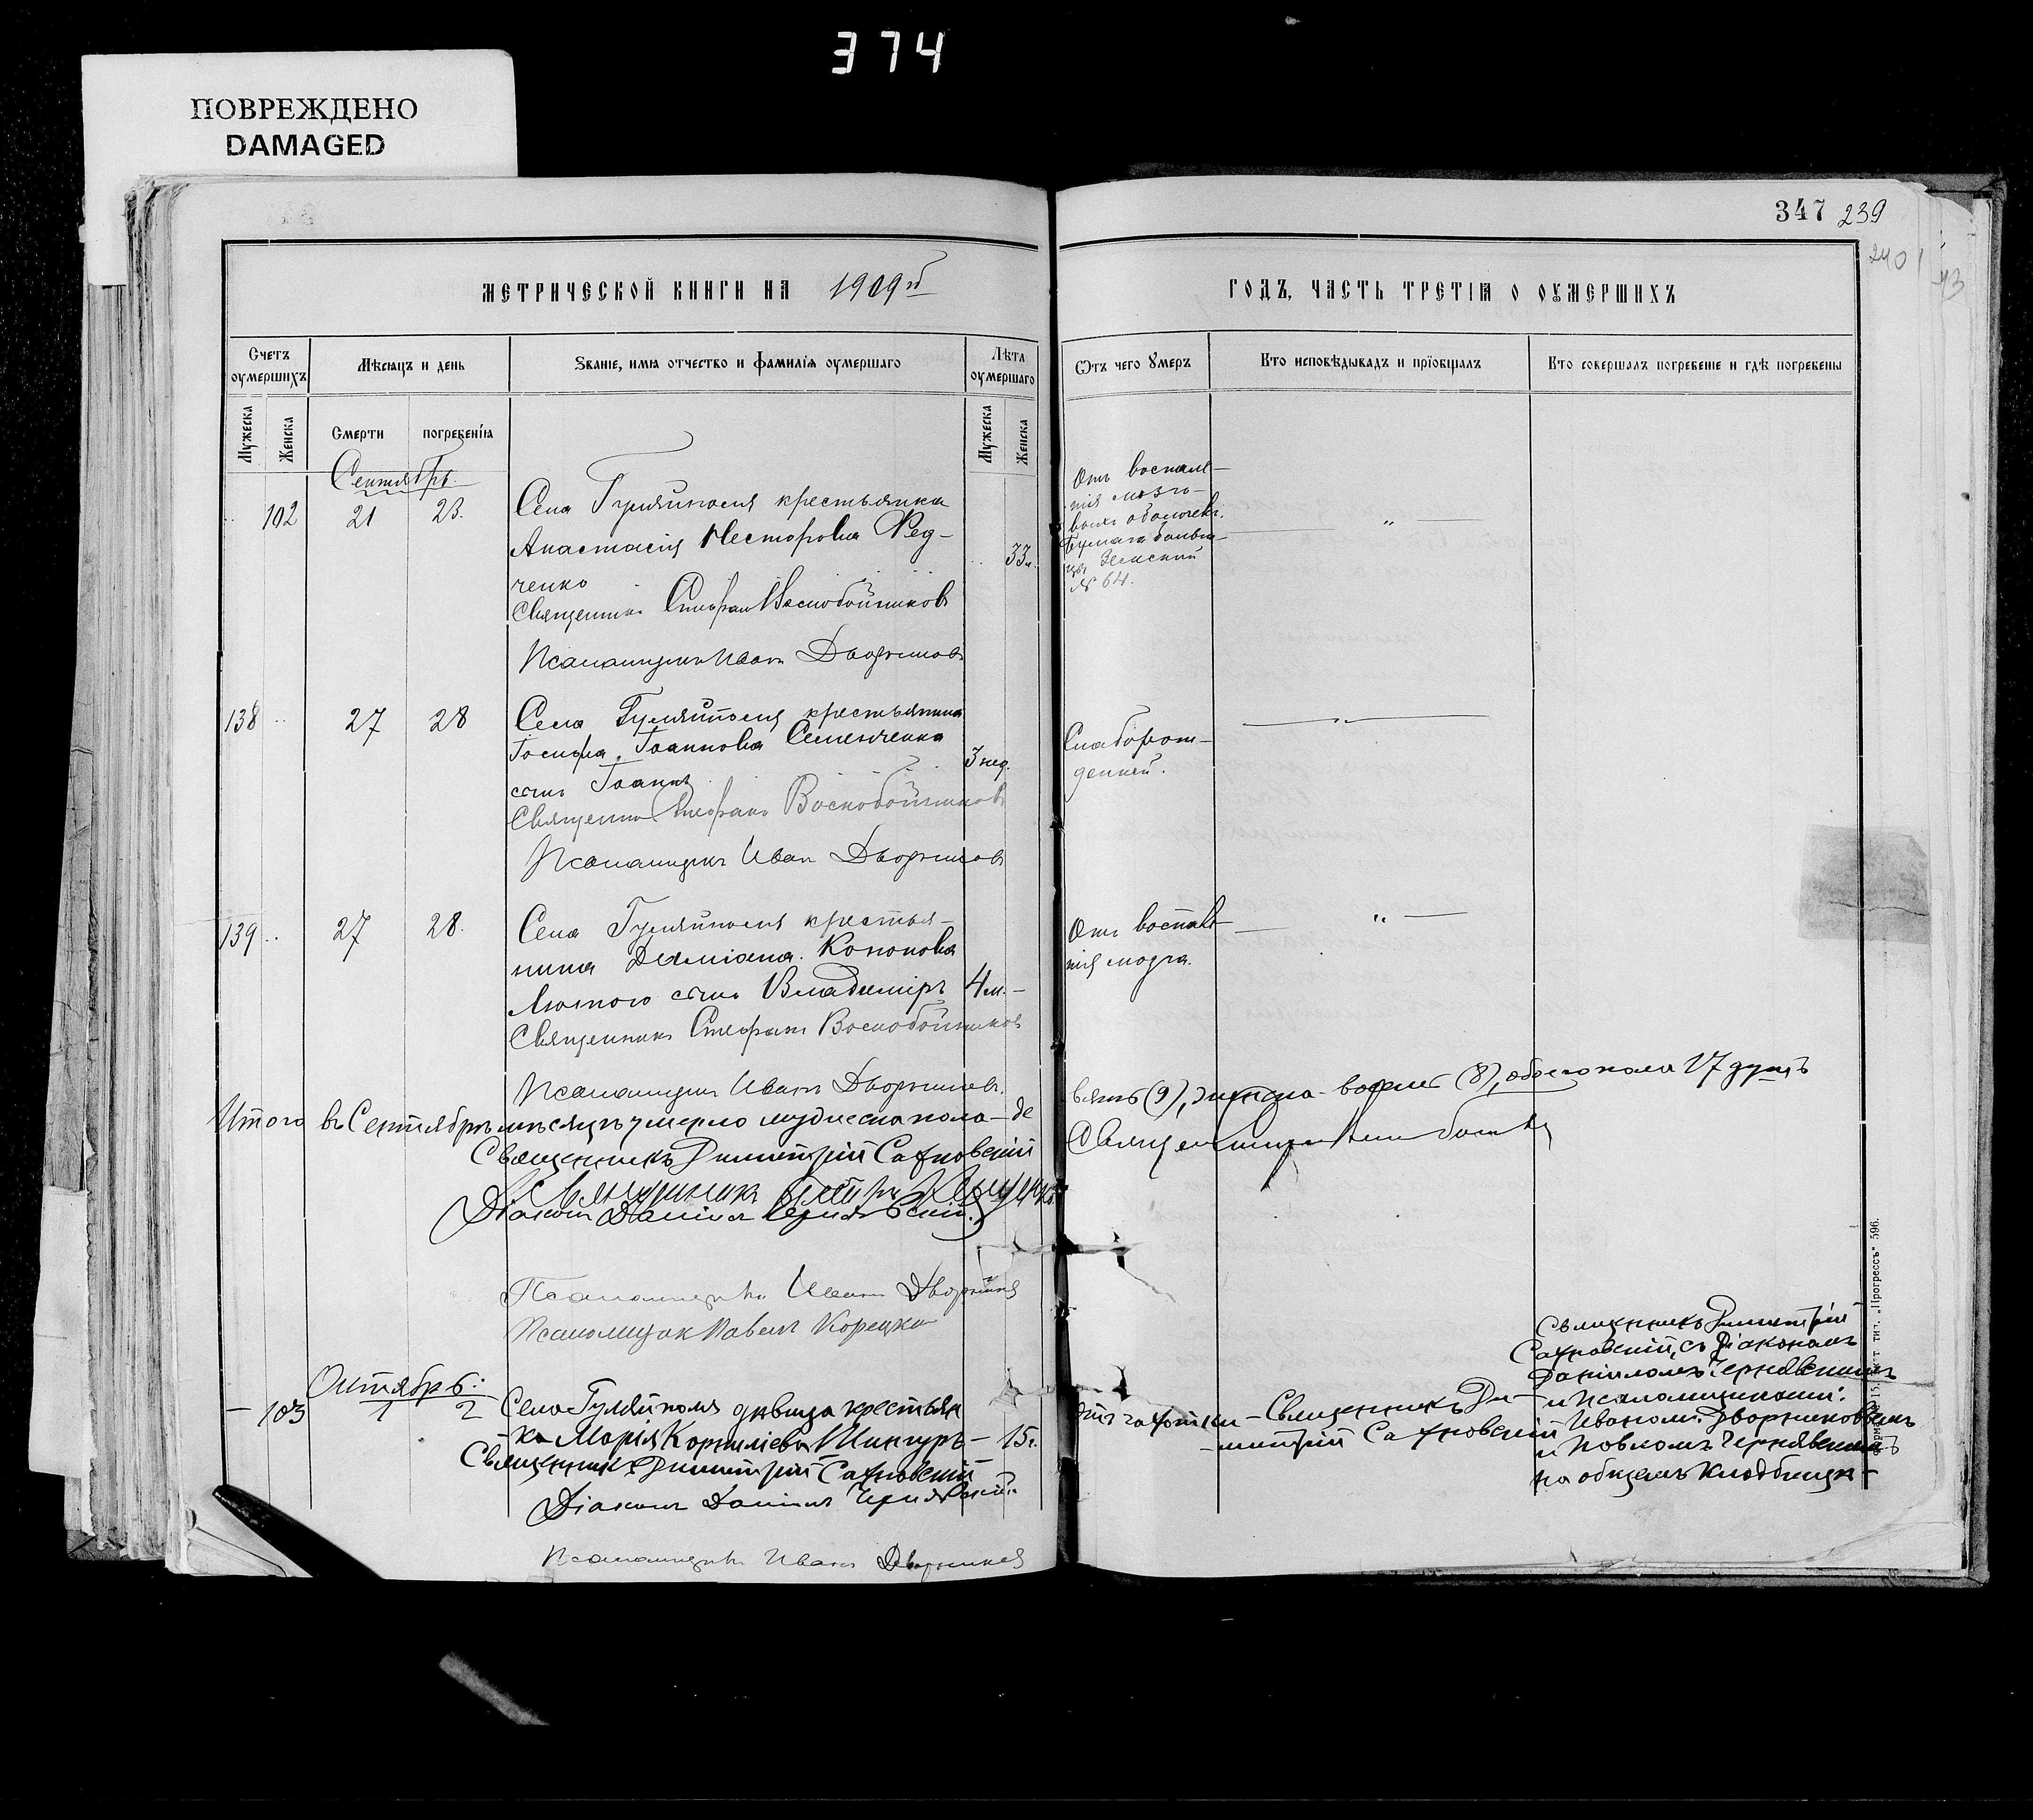 374
ПОВРЕЖДЕНО
DAMAGED
347 239
240
43
МЕТРИЧЕСКОЙ КНИГИ НА 1909й
ГОДЪ, ЧАСТЬ ТРЕТІѦ О ОУМЕРШИХЪ
Счетъ оумершихъ
Мѣсяцъ и день
Званіе, имя отчество и фамилія оумершаго
Лѣта оумершаго
Ѿтъ чего Ꙋмеръ
Кто исповѣдывалъ и пріобщалъ
Кто совершалъ погребеніе и гдѣ погребены
Мужеска
Женска
Смерти
погребенія
Мужеска
Женска
Сентябрь.
102 21 23.
Села Гуляйполя крестьянка
Анастасія Несторовна Ред-
ченко
33
Священникъ Стефан Воскобойников
Псаломщикъ Иван Дворников
Отъ воспале-
нія мозго-
выхъ оболочекъ.
Бумага больни-
цы Земской
№ 64.
138 27 28
Села Гуляйполя крестьянина
Іосифа Іоаннова Семенченка
сынъ Іоаннъ
3 нед.
Священникъ Стефанъ Воскобойниковъ
Псаломщикъ Иван Дворников
Слаборож-
денный.
139 27 28.
Села Гуляйполя крестья-
нина Даміана Кононова
Лютого сынъ Владиміръ 4 м. -
Священникъ Стефанъ Воскобойников
Псаломщикъ Иванъ Дворников.
Отъ воспале-
нія мозга.
Итого въ Сентябрѣ мѣсяцѣ умерло мужеска пола - де
вять (9), женска - восемь (8), обоего пола 17 душъ
Священникъ Димитрій Сахновскій
Священник
Діаконъ Даніилъ Чернявскій
Псаломщикъ Иванъ Дворников
Псаломщик Павелъ
Октябрь:
- 103 1 2
Села Гуляйполя дѣвица крестьян
ка Марія Корниліева Шингуръ - 15 г.
Священникъ Димитрій Сахновскій
Діаконъ Даніилъ Чернявскій
Псаломщикъ Иванъ Дворников
отъ чахотки - Священникъ Ди-
митрій Сахновскій
Священникъ Димитрій
Сахновскій, съ Діакономъ
Даніиломъ Чернявскимъ
и Псаломщиками:
Иваномъ Дворниковымъ
и Павломъ Чернявскимъ
на общемъ кладбищѣ -
тип. „Прогрессъ“ 596.